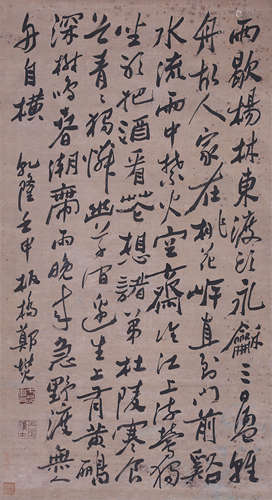 雨歇楊林東渡頭永龢三日盪輕
舟故人家在桃花岸直到門前谿
水流雨中禁火空齋冷江上流鶯獨
坐聽把酒看花想諸弟杜陵寒食
草青々獨憐幽草澗邊生上有黃鸝
深樹鳴春潮帶雨晚來急野渡無人
舟自橫 乾隆壬申 板橋鄭燮